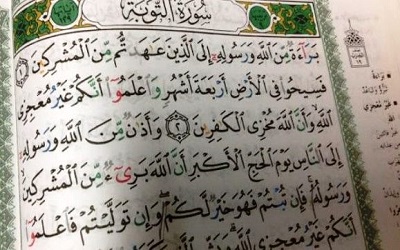 سُورَةُ التَّوْبَةِ
بَرَآءَةٌ مِّنَ اللَّهِ وَرَسُولِهِ إِلَى الَّذِينَ عَاهَدتُّم مِّنَ الْمُشْرِكِينَ ١
فَسِيحُوا فِي الْأَرْضِ أَرْبَعَةَ أَشْهُرٍ وَاعْلَمُوا أَنَّكُمْ غَيْرُ مُعْجِزِي
اللَّهِ وَأَنَّ اللَّهَ مُخْزِي الْكَافِرِينَ ٢ وَأَذَانٌ مِّنَ اللَّهِ وَرَسُولِهِ
إِلَى النَّاسِ يَوْمَ الْحَجِّ الْأَكْبَرِ أَنَّ اللَّهَ بَرِيءٌ مِّنَ الْمُشْرِكِينَ
وَرَسُولُهُ فَإِن تُبْتُمْ فَهُوَ خَيْرٌ لَّكُمْ وَإِن تَوَلَّيْتُمْ فَاعْلَمُوا
أَنَّكُمْ غَيْرُ مُعْجِزِي اللَّهِ